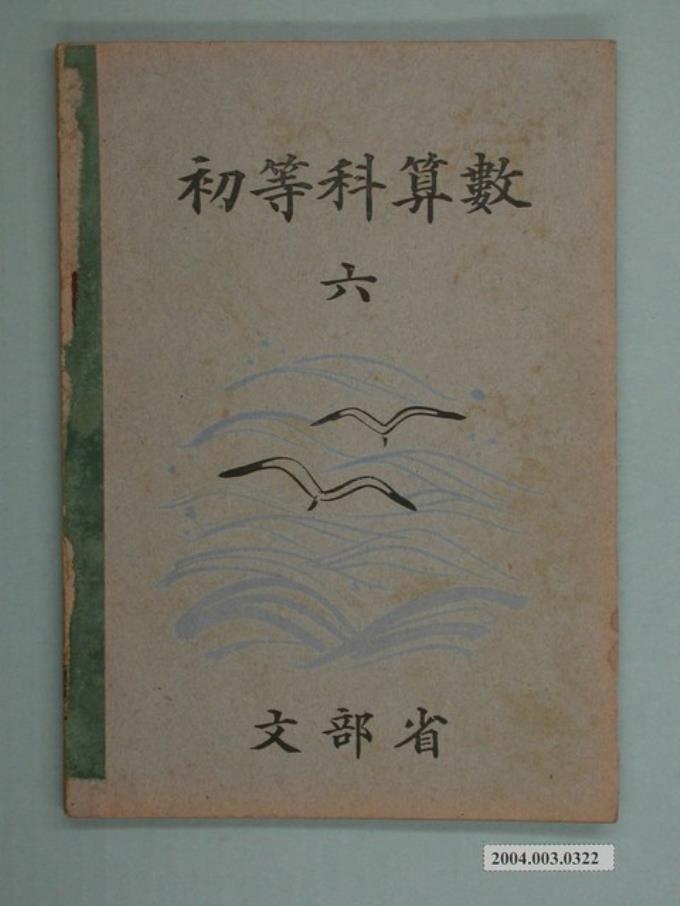 初等科算數
六
文部省
2004.003.0322